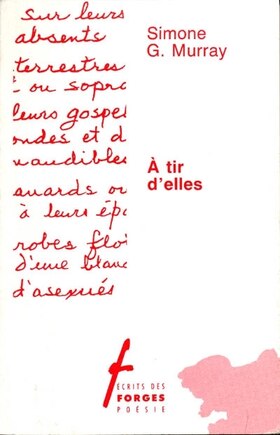 sur leurs
absents
terrestres
t ou sopra
leurs gospel
ondes et d
naudibles
anards ou
à leurs épa
robes floi
d'une blanc
d'asexués
Simone
G. Murray
À tir
d'elles
ÉCRITS DES
FORGES
POÉSIE